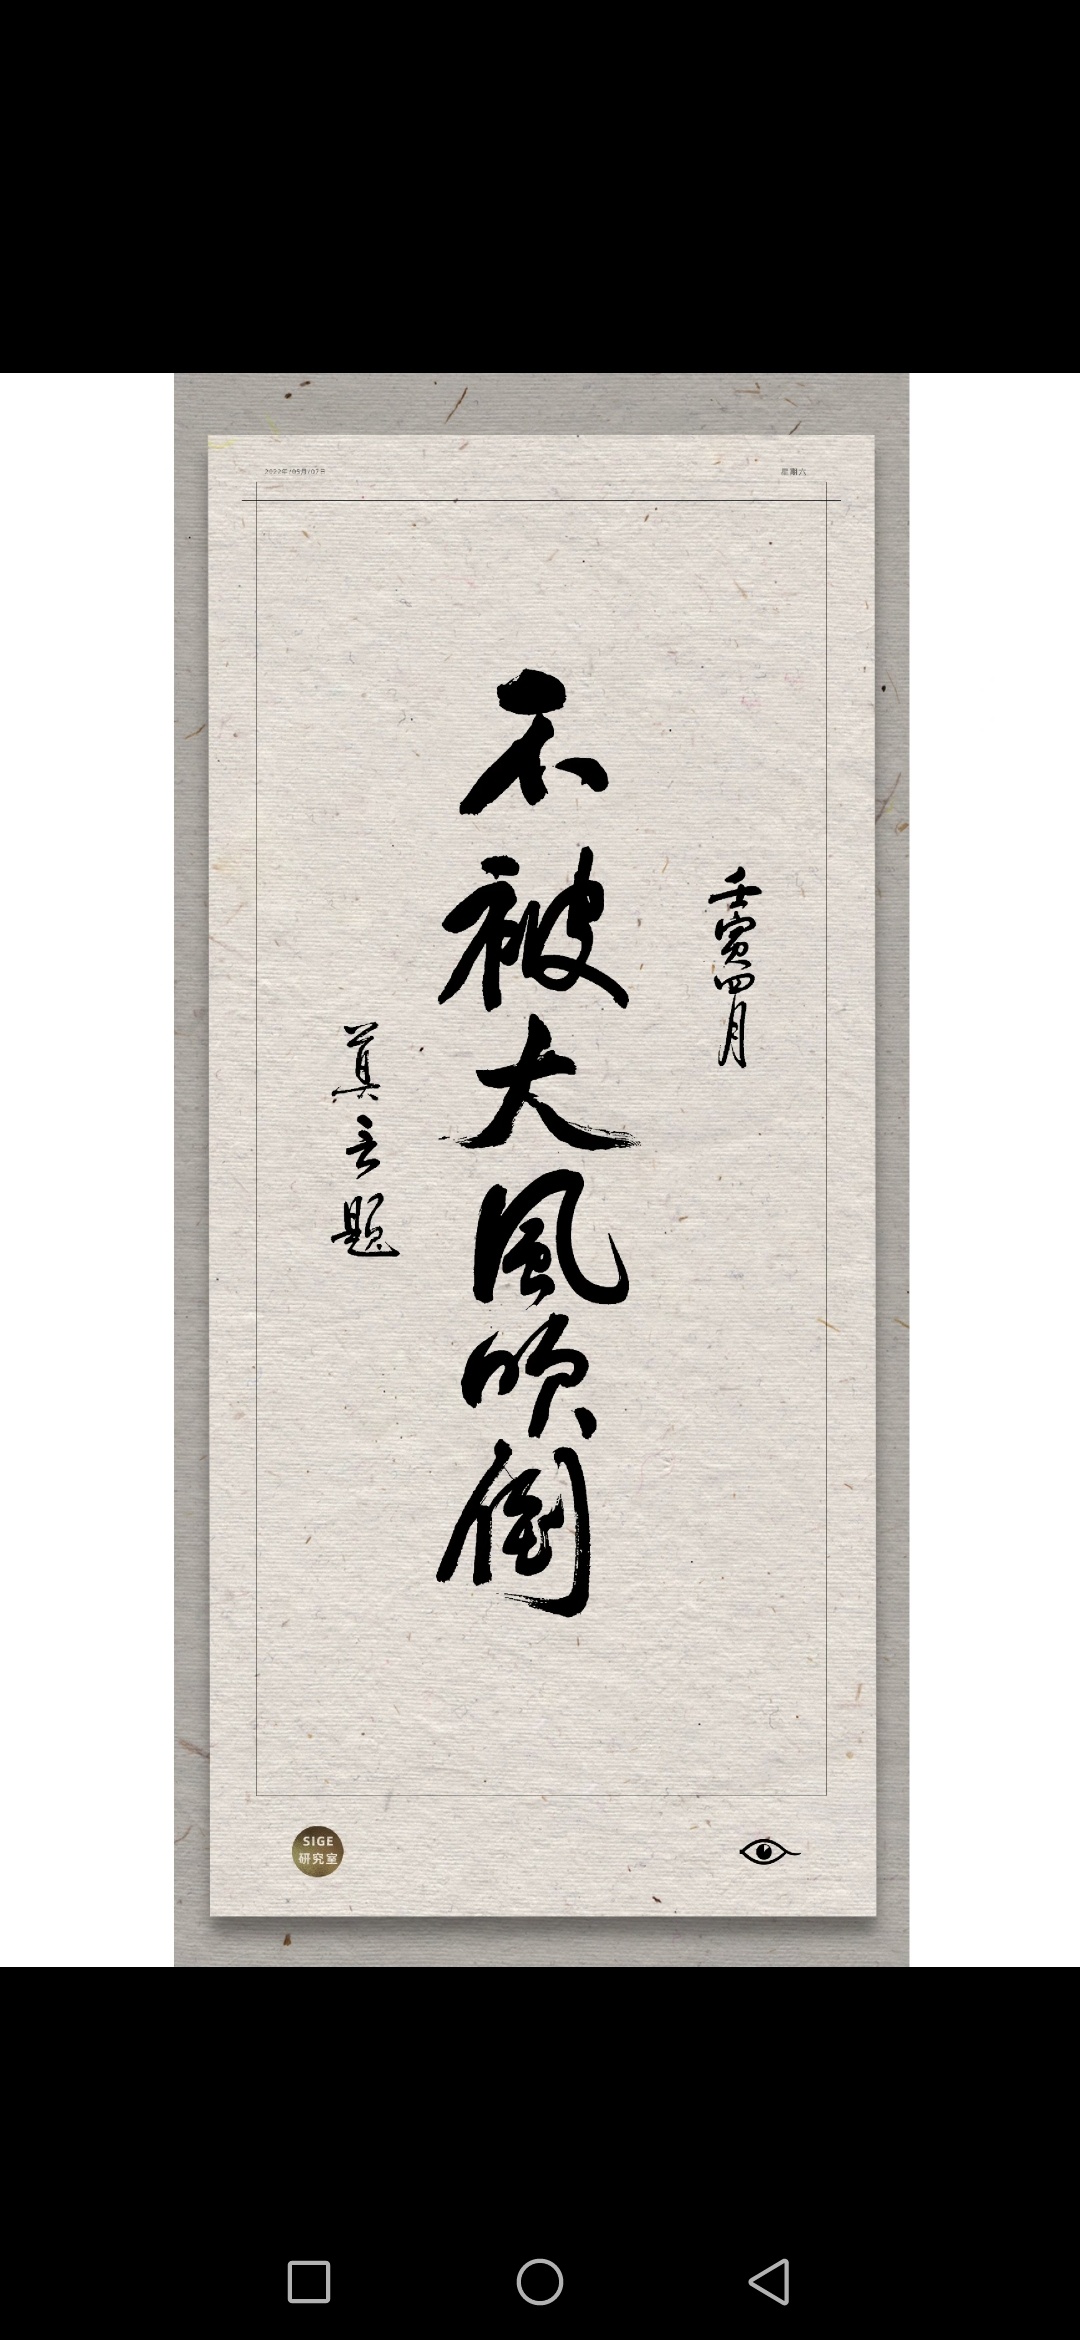 2022年/05月/07日
星期六
壬寅四月
不被大風吹倒
莫言題
SIGE
研究室